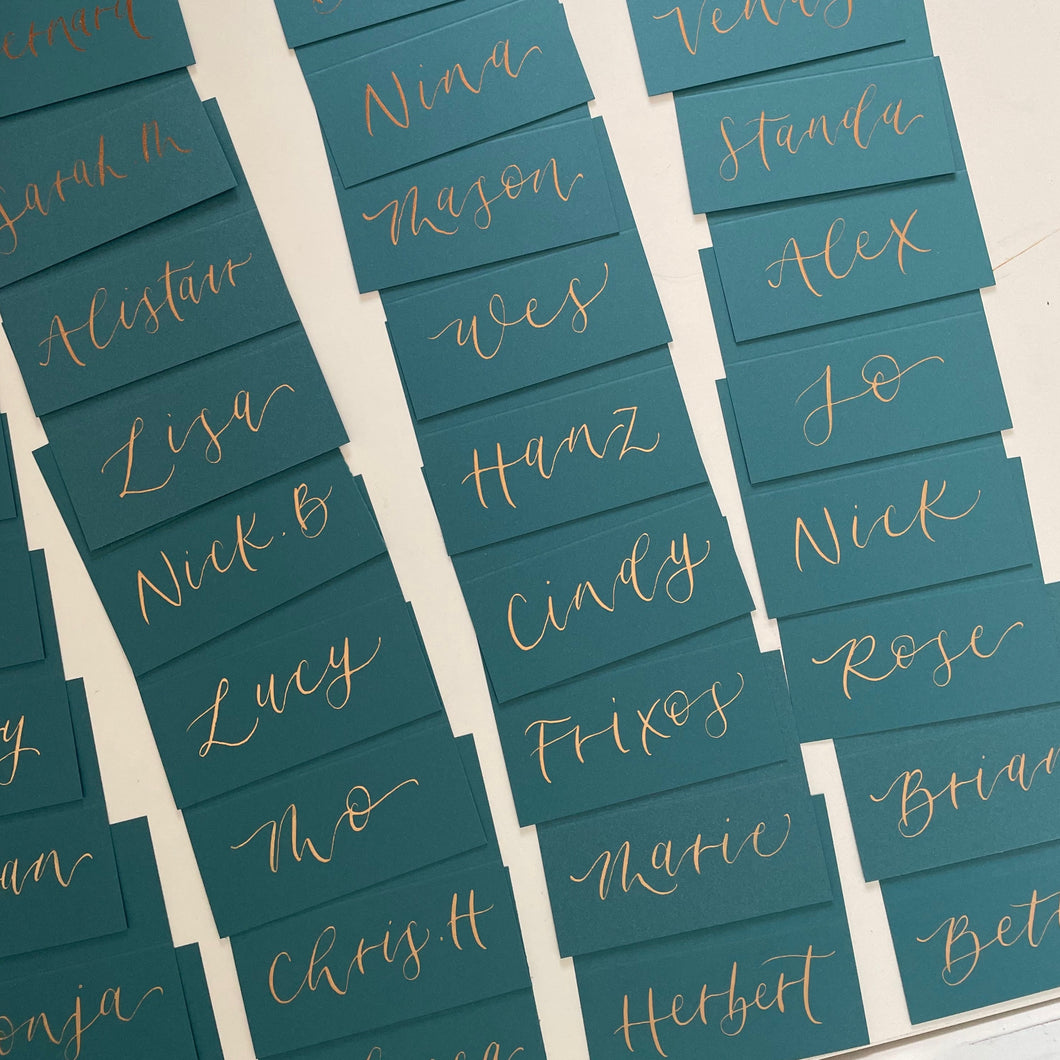 Sarah M
Alistair
Lisa
Nick.B
Lucy
Mo
Chris.H
Nina
Mason
Wes
Hanz
Cindy
Frixos
Marie
Herbert
Standa
Alex
Jo
Nick
Rose
Brian